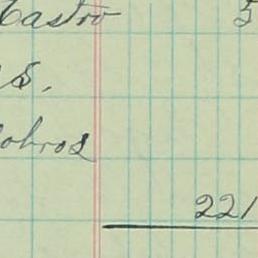 Castro 5
S.
obros
221